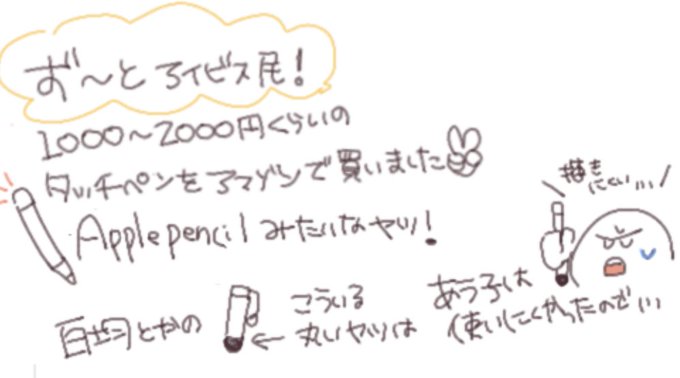 ず〜とアイビス民!
1000〜2000円くらいの
タッチペンをアマゾンで買いました
Applepencilみたいなヤツ!
百均とかの
こういう
丸いヤツは
あう子は
使いにくかったので…
描き
にくい…